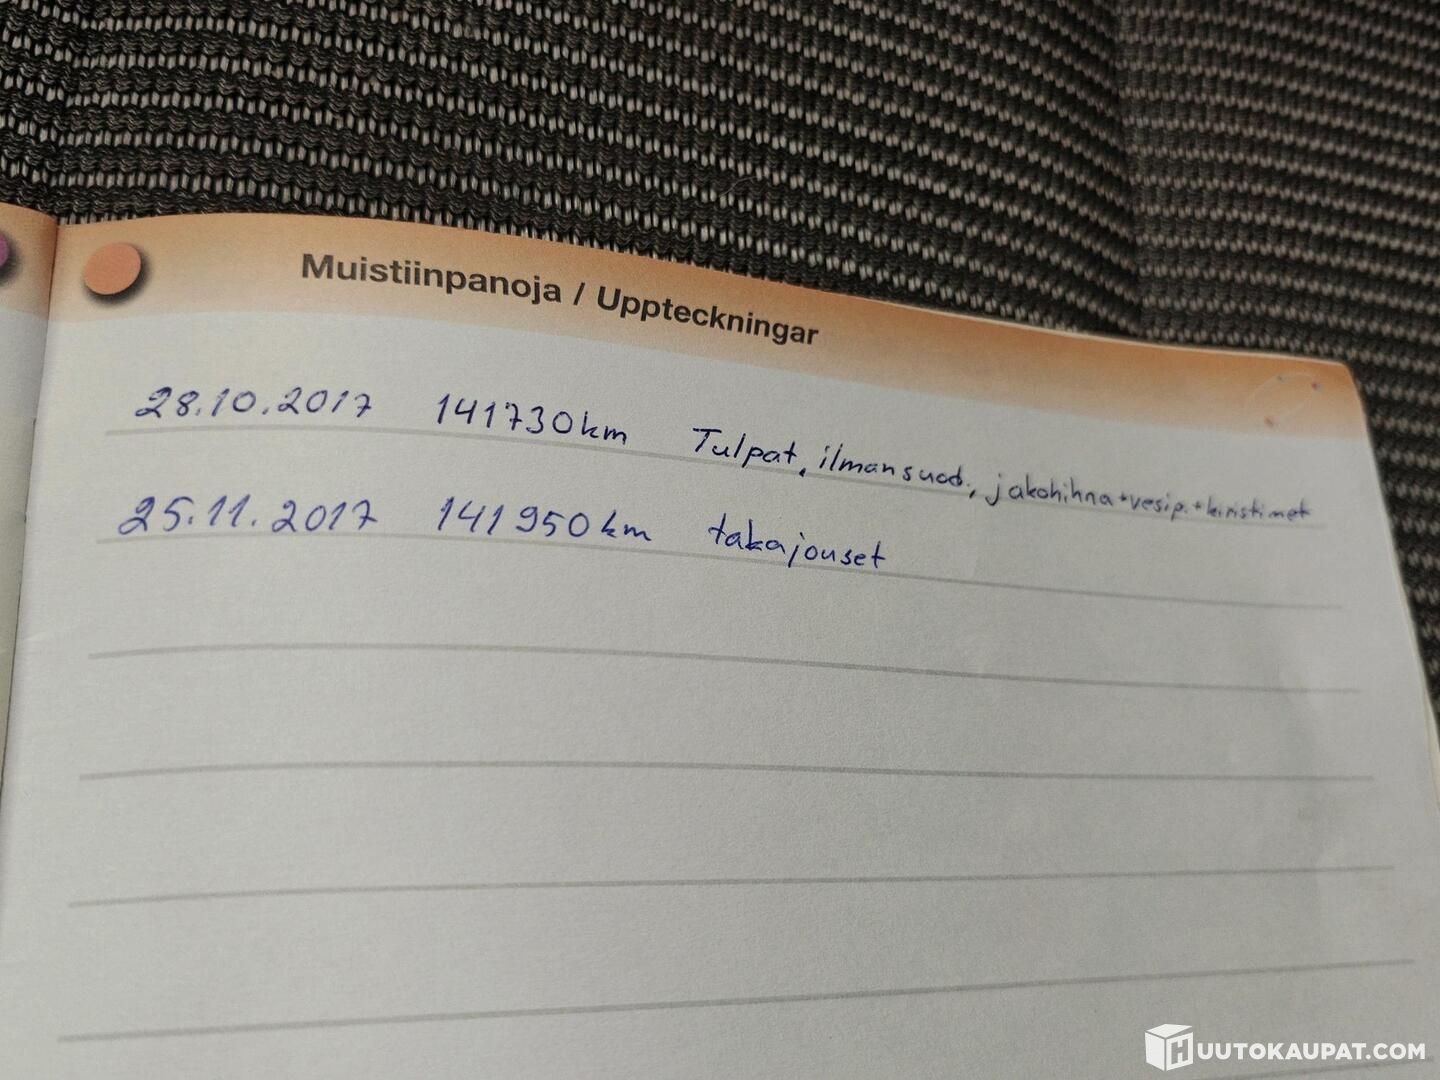 Muistiinpanoja / Uppteckningar
28.10.2017 141730km Tulpat, ilmansuod., jakohihna+vesip.+kiristimet
25.11.2017 141950km takajouset
HUUTOKAUPAT.COM